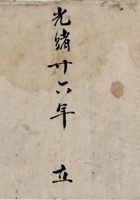 光緒廿六年 立